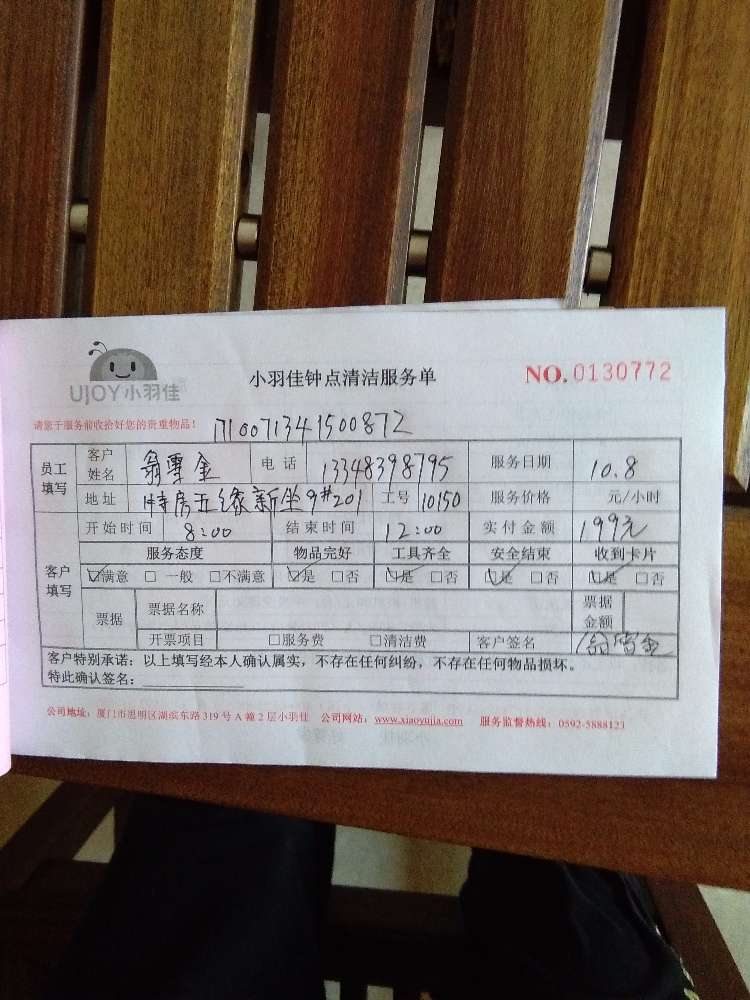 UJOY小羽佳
小羽佳钟点清洁服务单
NO.0130772
请您于服务前收拾好您的贵重物品!
1710071341500872
员工填写 客户姓名 翁雪金 电话 13348398795 服务日期 10.8
地址 特房五缘新坐9#201 工号 10150 服务价格 元/小时
客户填写 开始时间 8:00 结束时间 12:00 实付金额 199元
服务态度 物品完好 工具齐全 安全结束 收到卡片
☑满意 □ 一般 □不满意 ☑是 □否 ☑是 □否 ☑是 □否 ☑是 □否
票据 票据名称 票据金额
开票项目 □服务费 □清洁费 客户签名 翁雪金
客户特别承诺:以上填写经本人确认属实,不存在任何纠纷,不存在任何物品损坏。
特此确认签名:
公司地址:厦门市思明区湖滨东路319号A幢2层小羽佳 公司网站:www.xiaoyujia.com 服务监督热线:0592-5888123